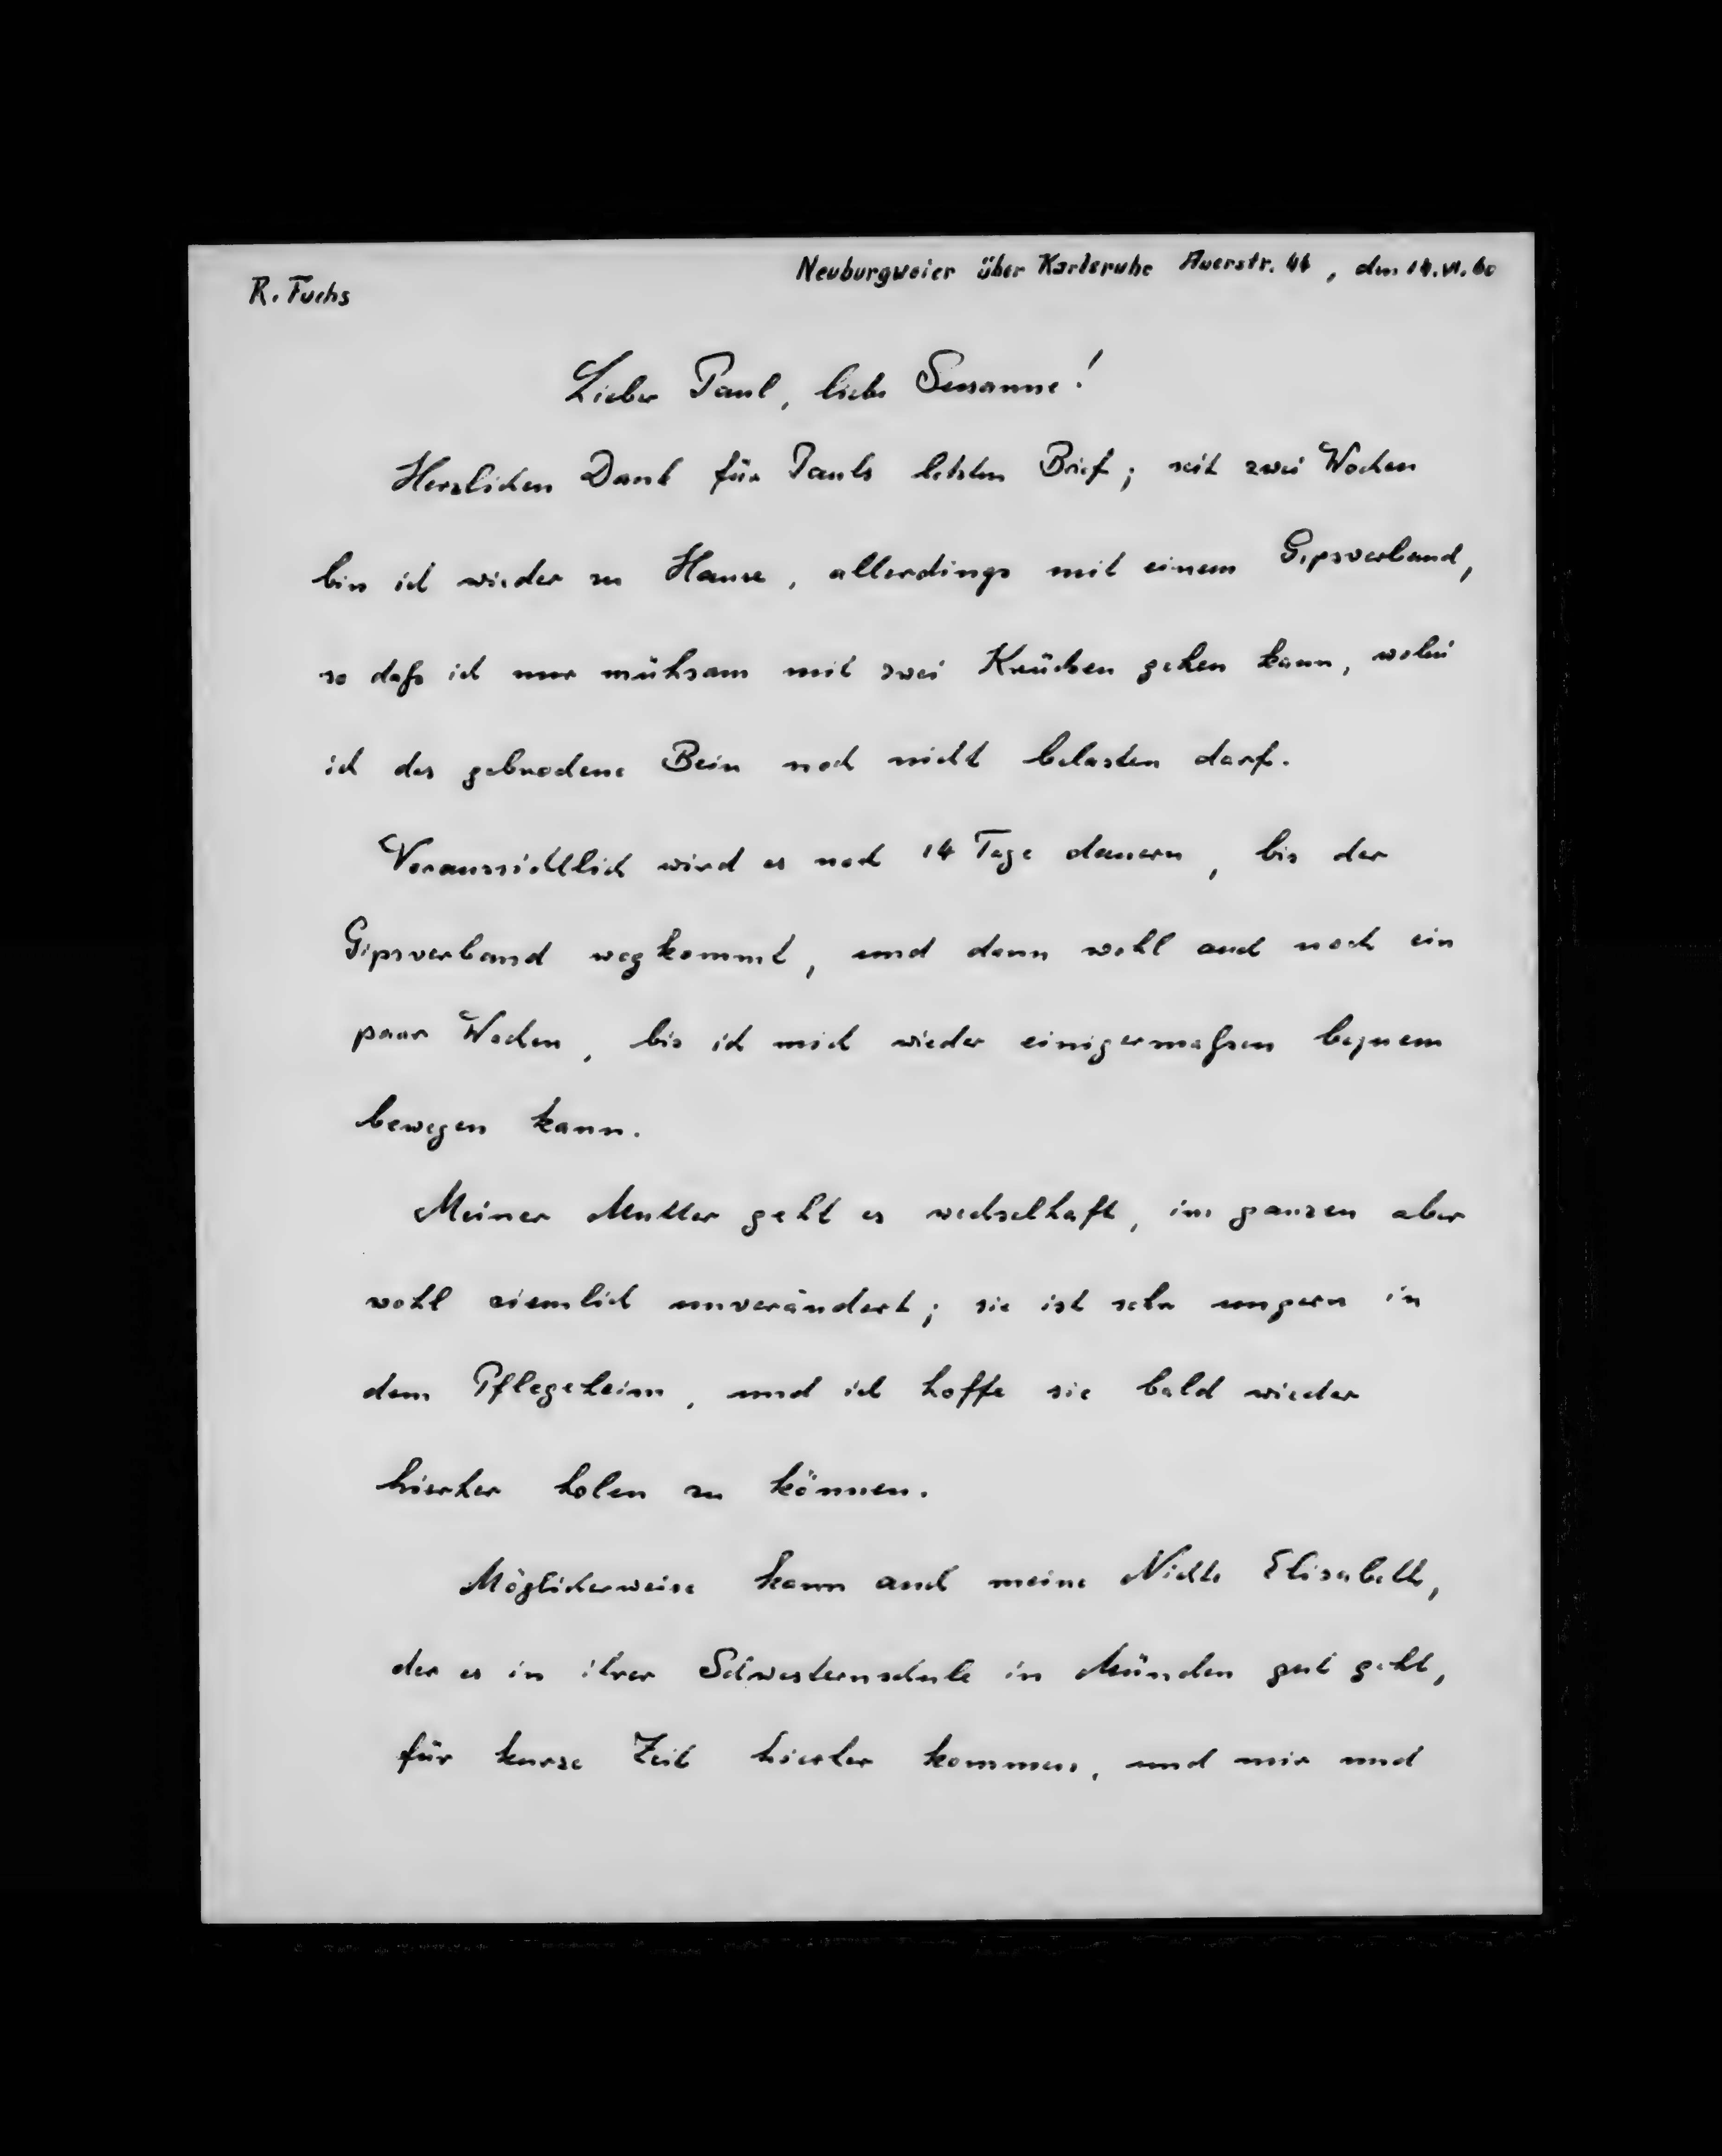 R. Fuchs
Neuburgweier über Karlsruhe Auerstr. 44, den 14.VI.60
Lieber Paul, liebe Susanne!
Herzlichen Dank für Pauls letzten Brief; seit zwei Wochen
bin ich wieder zu Hause, allerdings mit einem Gipsverband,
so daß ich nur mühsam mit zwei Krücken gehen kann, wobei
ich das gebrochene Bein noch nicht belasten darf.
Voraussichtlich wird es noch 14 Tage dauern, bis der
Gipsverband wegkommt, und dann wohl auch noch ein
paar Wochen, bis ich mich wieder einigermaßen bequem
bewegen kann.
Meiner Mutter geht es wechselhaft, im ganzen aber
wohl ziemlich unverändert; sie ist sehr ungern in
dem Pflegeheim, und ich hoffe sie bald wieder
hierher holen zu können.
Möglicherweise kann auch meine Nichte Elisabeth,
der es in ihrer Schwesternschule in München gut geht,
für kurze Zeit hierher kommen, und mir und